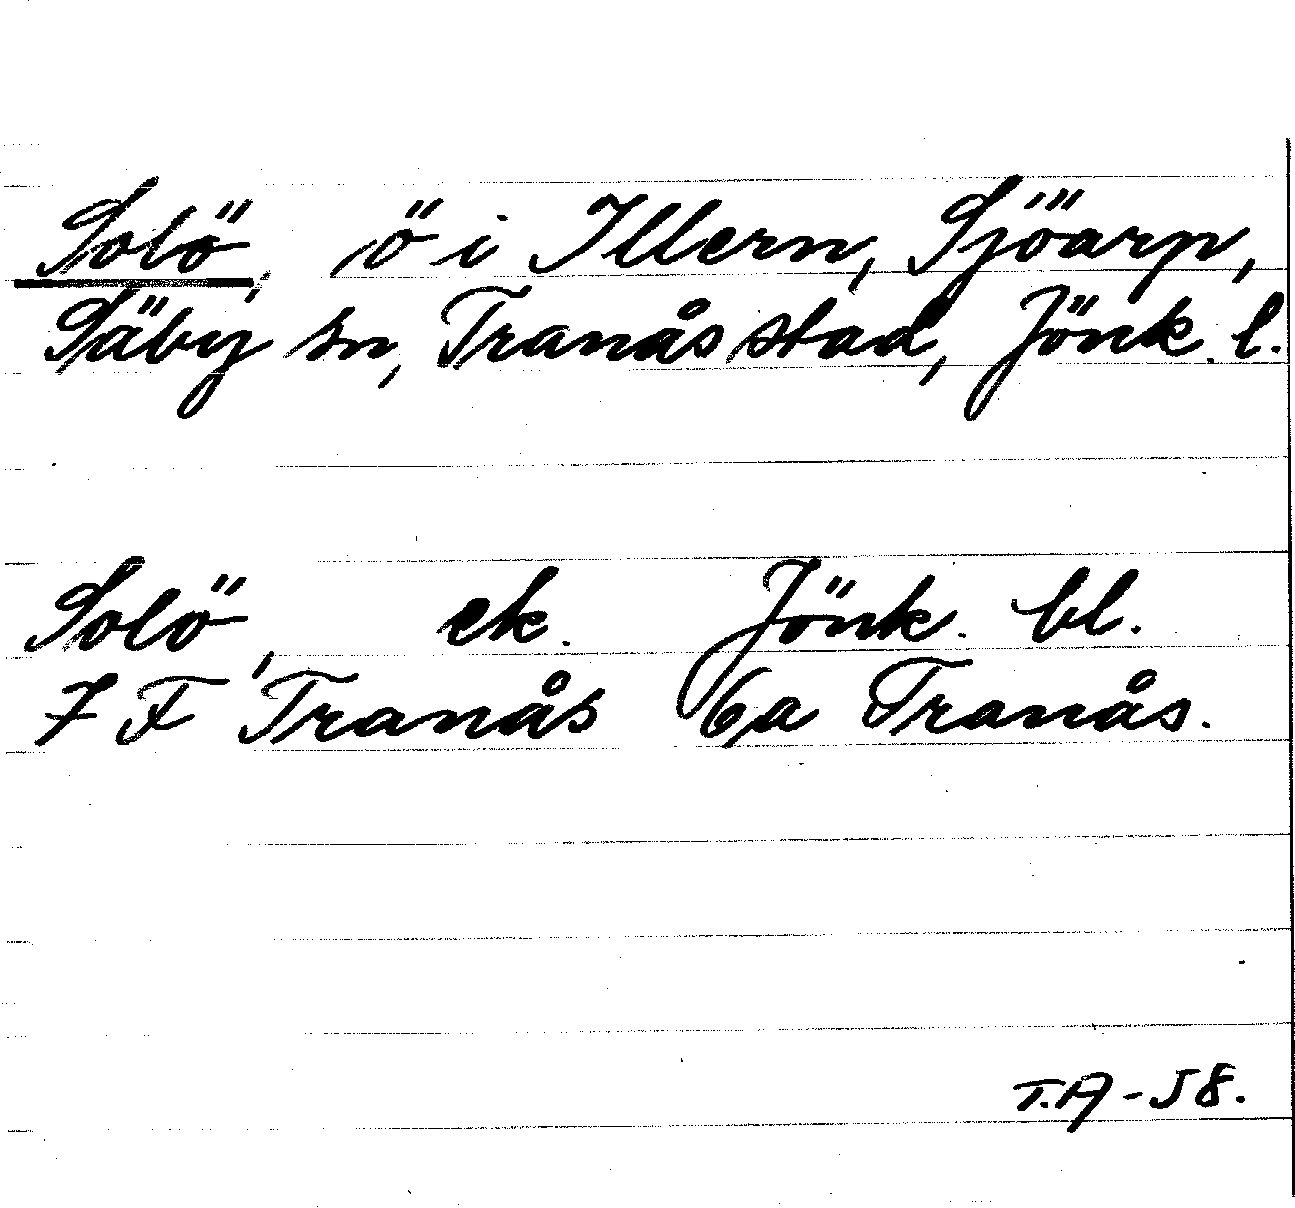 Solö, ö i Illern, Sjöarp,
Säby sn, Tranås stad, Jönk. l.
Solö, ek. Jönk. bl.
7 F Tranås 6a Tranås.
T.A - 58.